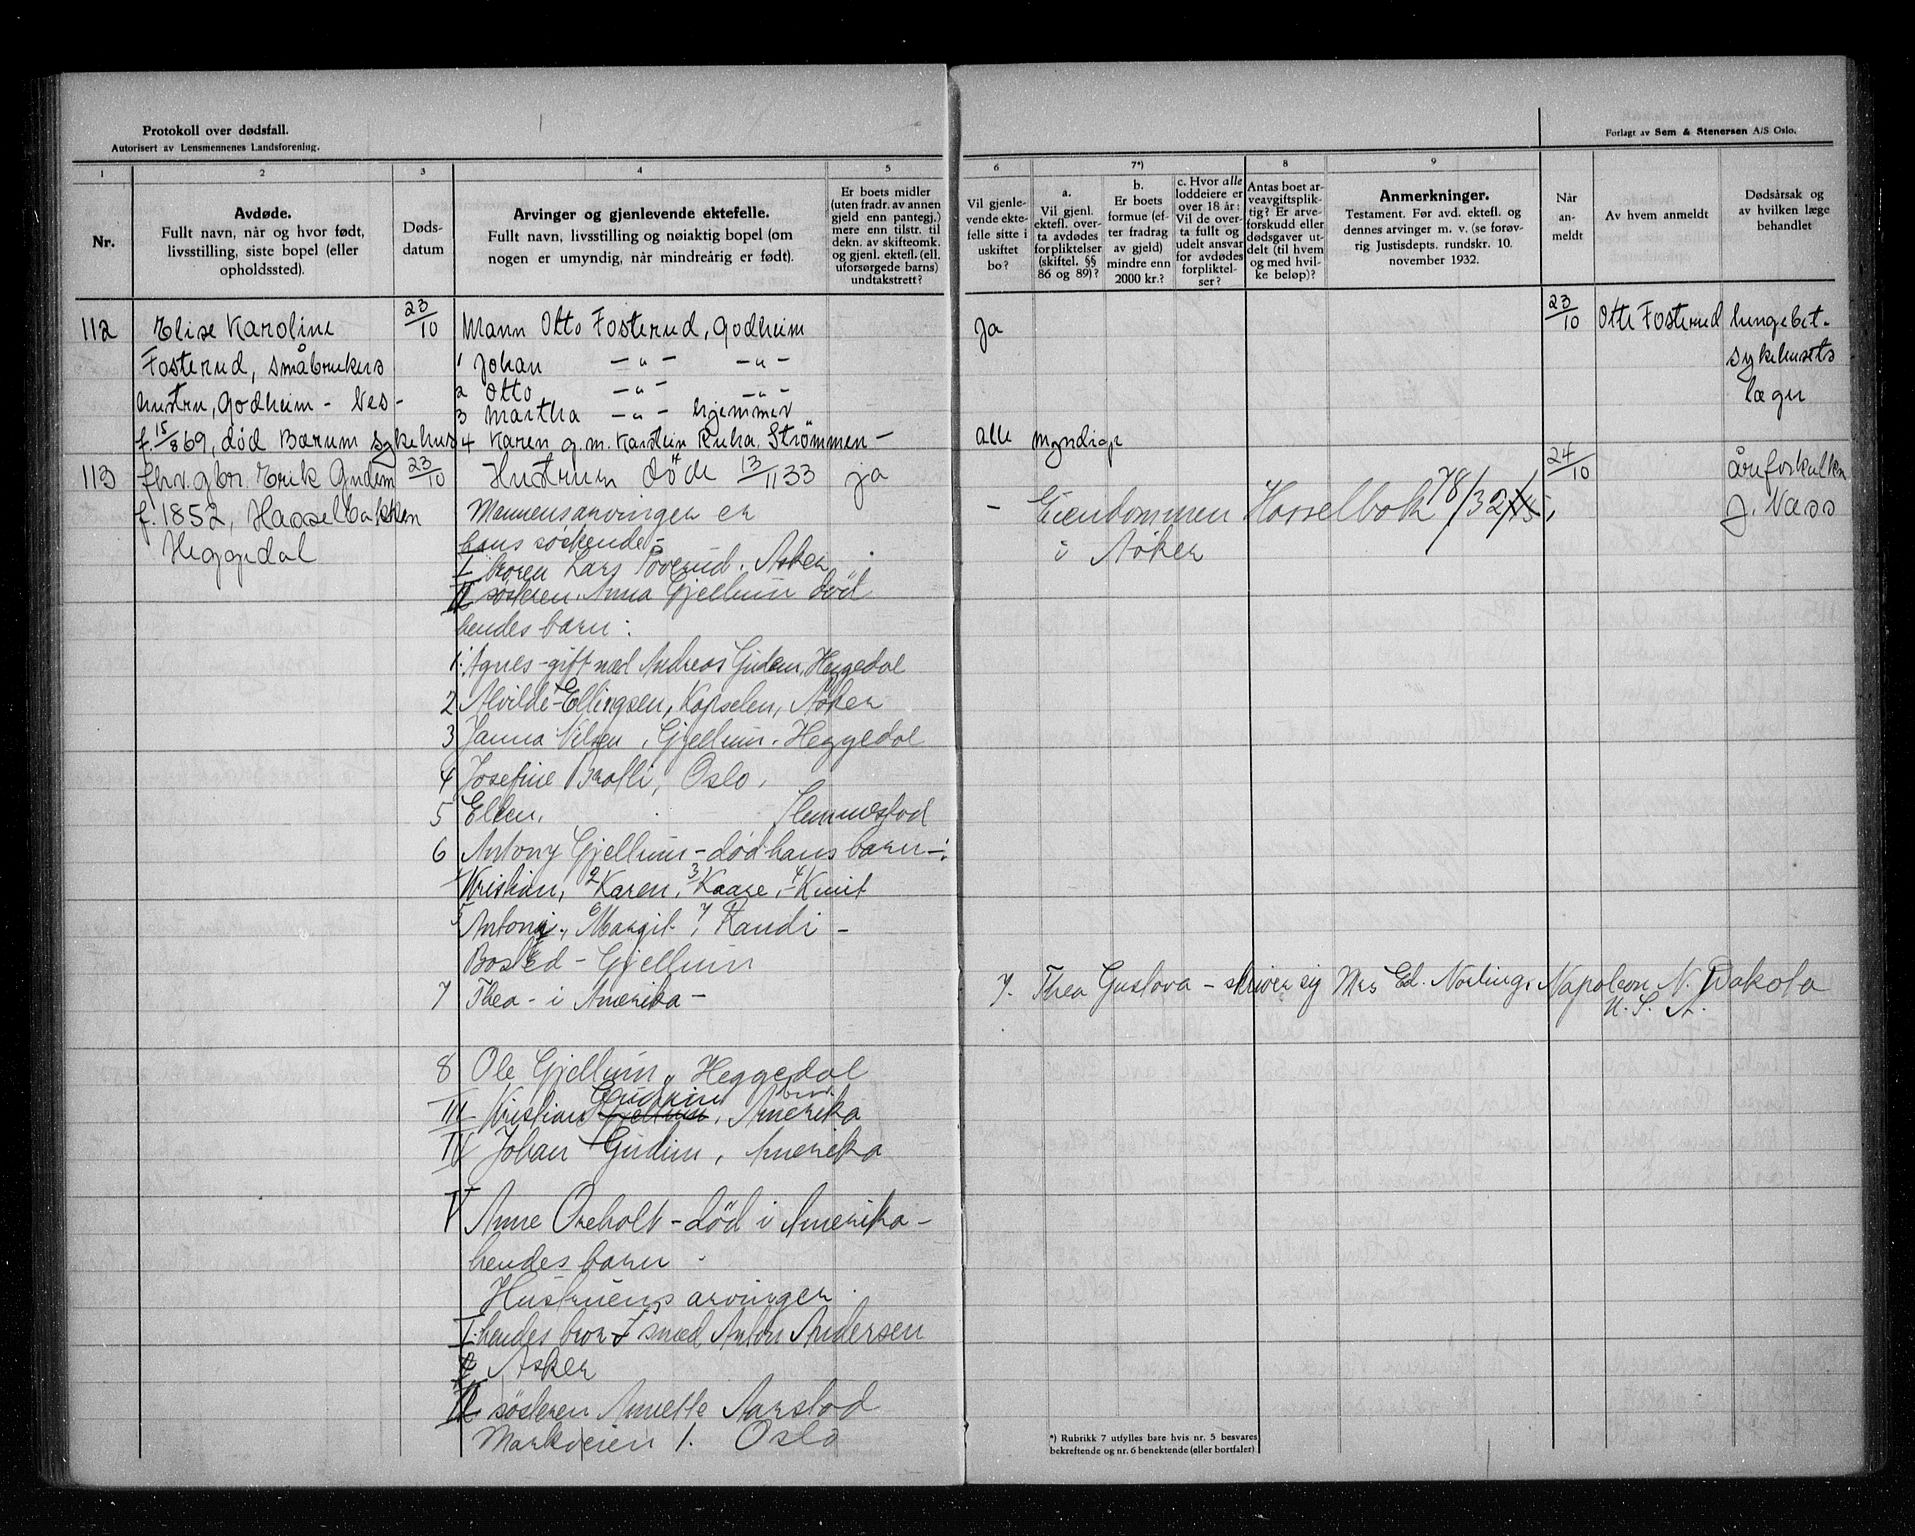 Protokoll over dødsfall.
Autorisert av Lensmennenes Landsforening.
Forlagt av Sem & Stenersen A/S Oslo.
1
2
3
4
5
6
7*)
8
9
Nr.
Avdøde.
Fullt navn, når og hvor født,
livsstilling, siste bopel (eller
opholdssted).
Døds-
datum
Arvinger og gjenlevende ektefelle.
Fullt navn, livsstilling og nøiaktig bopel (om
nogen er umyndig, når mindreårig er født).
Er boets midler
(uten fradr. av annen
gjeld enn pantegj.)
mere enn tilstr. til
dekn. av skifteomk.
og gjenl. ektefl. (ell.
uforsørgede barns)
undtakstrett?
Vil gjenle-
vende ekte-
felle sitte i
uskiftet
bo?
a.
Vil gjenl.
ektefl. over-
ta avdødes
forpliktelser
(skiftel. §§
86 og 89)?
b.
Er boets
formue (ef-
ter fradrag
av gjeld)
mindre enn
2000 kr.?
c. Hvor alle
loddeiere er
over 18 år:
Vil de over-
ta fullt og
udelt ansvar
for avdødes
forpliktel-
ser?
Antas boet ar-
veavgiftsplik-
tig? Er arve-
forskudd eller
dødsgaver ut-
delt (til hvem
og med hvil-
ke beløp)?
Anmerkninger.
Testament. Før avd. ektefl. og
dennes arvinger m. v. (se forøv-
rig Justisdepts. rundskr. 10.
november 1932.
Når
an-
meldt
Av hvem anmeldt
Dødsårsak og
av hvilken læge
behandlet
112 Elise Karoline 23/10 Mann Otto Fosterud, Godheim ja 23/10 Otto Fosterud lungebet.
Fosterud, småbrukers 1 Johan – " – – " – sykehusets
hustru, Godheim - Nes- 2 Otto – " – – " – læger
3 Martha – " – hjemmev
f. 15/8 69, død Bærum sykehus 4 Karen g.m. Karstein Ruha, Strømmen – alle myndige
113 fhv. gbr. Erik Gudem 23/10 Hustruen døde 13/11 33 ja 24/10 åreforkalkn
f. 1852, Hasselbakken Mannens arvinger er – Eiendommen Hasselbak 78/32 J. Næss
Heggedal hans søskende - i Asker
I broren Lars Töverud. Asker
II søsteren. Anna Gjellum død
hendes barn:
1. Agnes - gift med Andreas Gudem, Heggedal
2 Alvilde Ellingsen, Kopselen, Asker
3 Janna Nilsen, Gjellum. Heggedal
4 Josefine Brofli, Oslo.
5 Ellen. Slemmestad
6 Antony Gjellum - død hans barn -:
Kristian, 2 Karen, 3 Kaare, 4 Knut
5 Antoni, 6 Margit 7 Randi -
Bosted - Gjellum
7 Thea - i Amerika - 7. Thea Gustava - skriver sig Mrs Ed. Nortling, Napoleon N. Dakota
U. S. A.
8 Ole Gjellum, Heggedal
III Kristian Gjellum Gudem, Amerika
IV Johan Gudim, Amerika
V Anne Oreholt - død i Amerika -
hendes barn -
Hustruens arvinger.
I. hendes bror smed Anton Andersen
Asker
II søsteren Annette Aarstad
Markveien 1. Oslo
*) Rubrikk 7 utfylles bare hvis nr. 5 besvares
bekreftende og nr. 6 benektende (eller bortfaler)